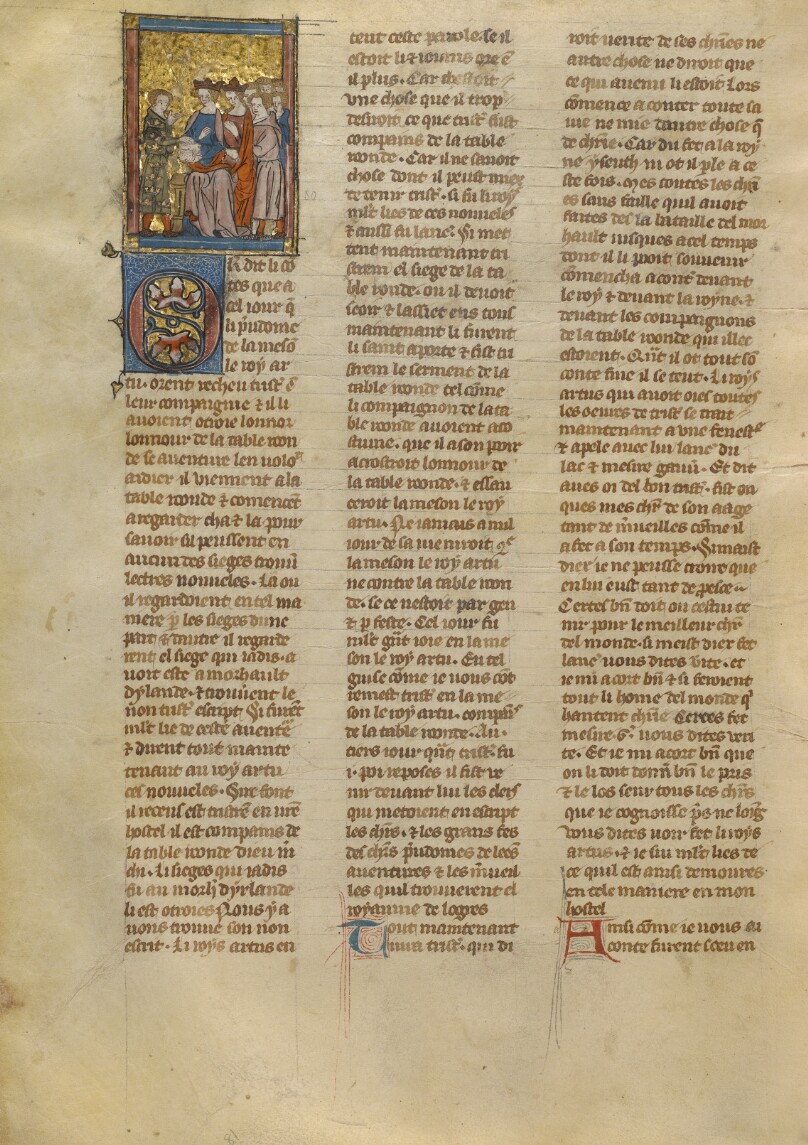 Or dit li cō
tes que a
cel iour q̄
li p̄udome
de la mesō
le roy ar
tu. orent recheu trist̄ ⁊
leur compaignie ⁊ il li
auoient otroie lonnor
lonnour de la table ron
de se auenture len uolo
aidier il viennent a la
table ronde ⁊ comencēt
a regarder cha ⁊ la pour
sauoir sil peussent en
aucun des sieges trouū
lectres nouueles. La ou
il regardoient en tel ma
niere p̄ les sieges dune
part ⁊ dautre il regarde
rent el siege qui iadis. a
uoit este a morhault
dyrlande. ⁊ trouuent le
non trist̄ escript. Si furēt
ml̄t lie de ceste auentē
⁊ dirent tout mainte
tenant au roy artu
ces nouueles. Sire font
il recens est tristrē en vr̄e
hostel il est compains de
la table ronde dieu m̄
chi. Li sieges qui iadis
fu au morh̄ dyrlande
li est otroies Nous y a
uons trouue son non
escrit. Li roys artus en
tent ceste parole. se il
estoit lies ioians ore ē
il plus. Car chestoit
vne chose que il trop
desiroit ce que trist̄ fust
compains de la table
ronde. Car il ne sauoit
chose dont il peust miex
retenir trist̄. si fu li roys
ml̄t lies de ces nouueles
⁊ aussi fu lanc̄. Si met
tent maintenant tri
strem el siege de la ta
ble ronde. ou il deuoit
seoir ⁊ lassiet ens tous
maintenant li furent
li saint aporte ⁊ fist tri
strem le serment de la
table ronde tel cōme
li compaignon de la ta
ble ronde auoient aco
stume. que il a son pooir
acroistroit lonnour de
la table ronde. ⁊ essau
ceroit la meson le roy
artu. Ne iamais a nul
iour de sa vie niroit
la meson le roy artu
ne contre la table ron
de. se ce nestoit par geu
⁊ p̄ feste. Cel iour fu
ml̄t grāt ioie en la me
son le roy artu. En tel
guise cōme ie vous cōt
remest trist̄ en la me
son le roy artu. compaīs
de la table ronde. Au
tiers iour q̄nt̄ trist̄. fu
.i. poi reposes il fist ve
nir deuant lui les clers
qui metoient en escript
les ch̄rs. ⁊ les grans fes
des ch̄rs p̄udomes de lees
auentures ⁊ les m̄ueil
les quil trouuerent el
royaume de logres
Tout maintenant
iura trist̄. qui di
roit verite de ses ch̄ries ne
autre chose ne diroit que
ce qui auenu li estoit Lors
cōmence a conter toute sa
vie ne mie dautre chose q̄
de ch̄rie. Car du fet a la roy
ne yseuth ni ot il ple a ce
ste fois. mes contes les ch̄ri
es sans faille quil auoit
faites des la bataille del mor
hault iusques a cel temps
dont il li pooit souuenir
cōmencha a cont̄ deuant
le roy ⁊ deuant la royne. ⁊
deuant les compaignons
de la table ronde qui illec
estoient. Q̄nt il ot tout sō
conte fine il se teut. Li roys
artus qui auoit oies toutes
les oeures de trist̄ se trait
maintenant a vne fenestᵉ
⁊ apele auec lui lanc̄ du
lac ⁊ mesire gauū. Et dit
aues oi del bon trist̄. fist on
ques mes ch̄r de son aage
tant de m̄ueilles cōme il
a fet a son temps. Si maist
diex ie ne peusse croire que
en lui eust tant de p̄esce
Certes bn̄ doit on cestui te
nir pour le meilleur ch̄r
del monde. si meist diex fet
lanc̄ vous dites voir. et
ie mi acort bn̄ ⁊ si feroient
tout li home del monde qͥ
hantent ch̄rie Certes fet
mesire g. vous dites veri
te. Et ie mi acort bn̄ que
on li doit donn̄ bn̄ le pris
⁊ le los seur tous les ch̄rs
que ie cognoisse p̄s ne loīg
Vous dites uoir fet li roys
artus. ⁊ ie sui ml̄t lies de
ce quil est ainsi demoures
en tele maniere en mon
hostel
Ainsi cōme ie vous ai
conte furent sceu en